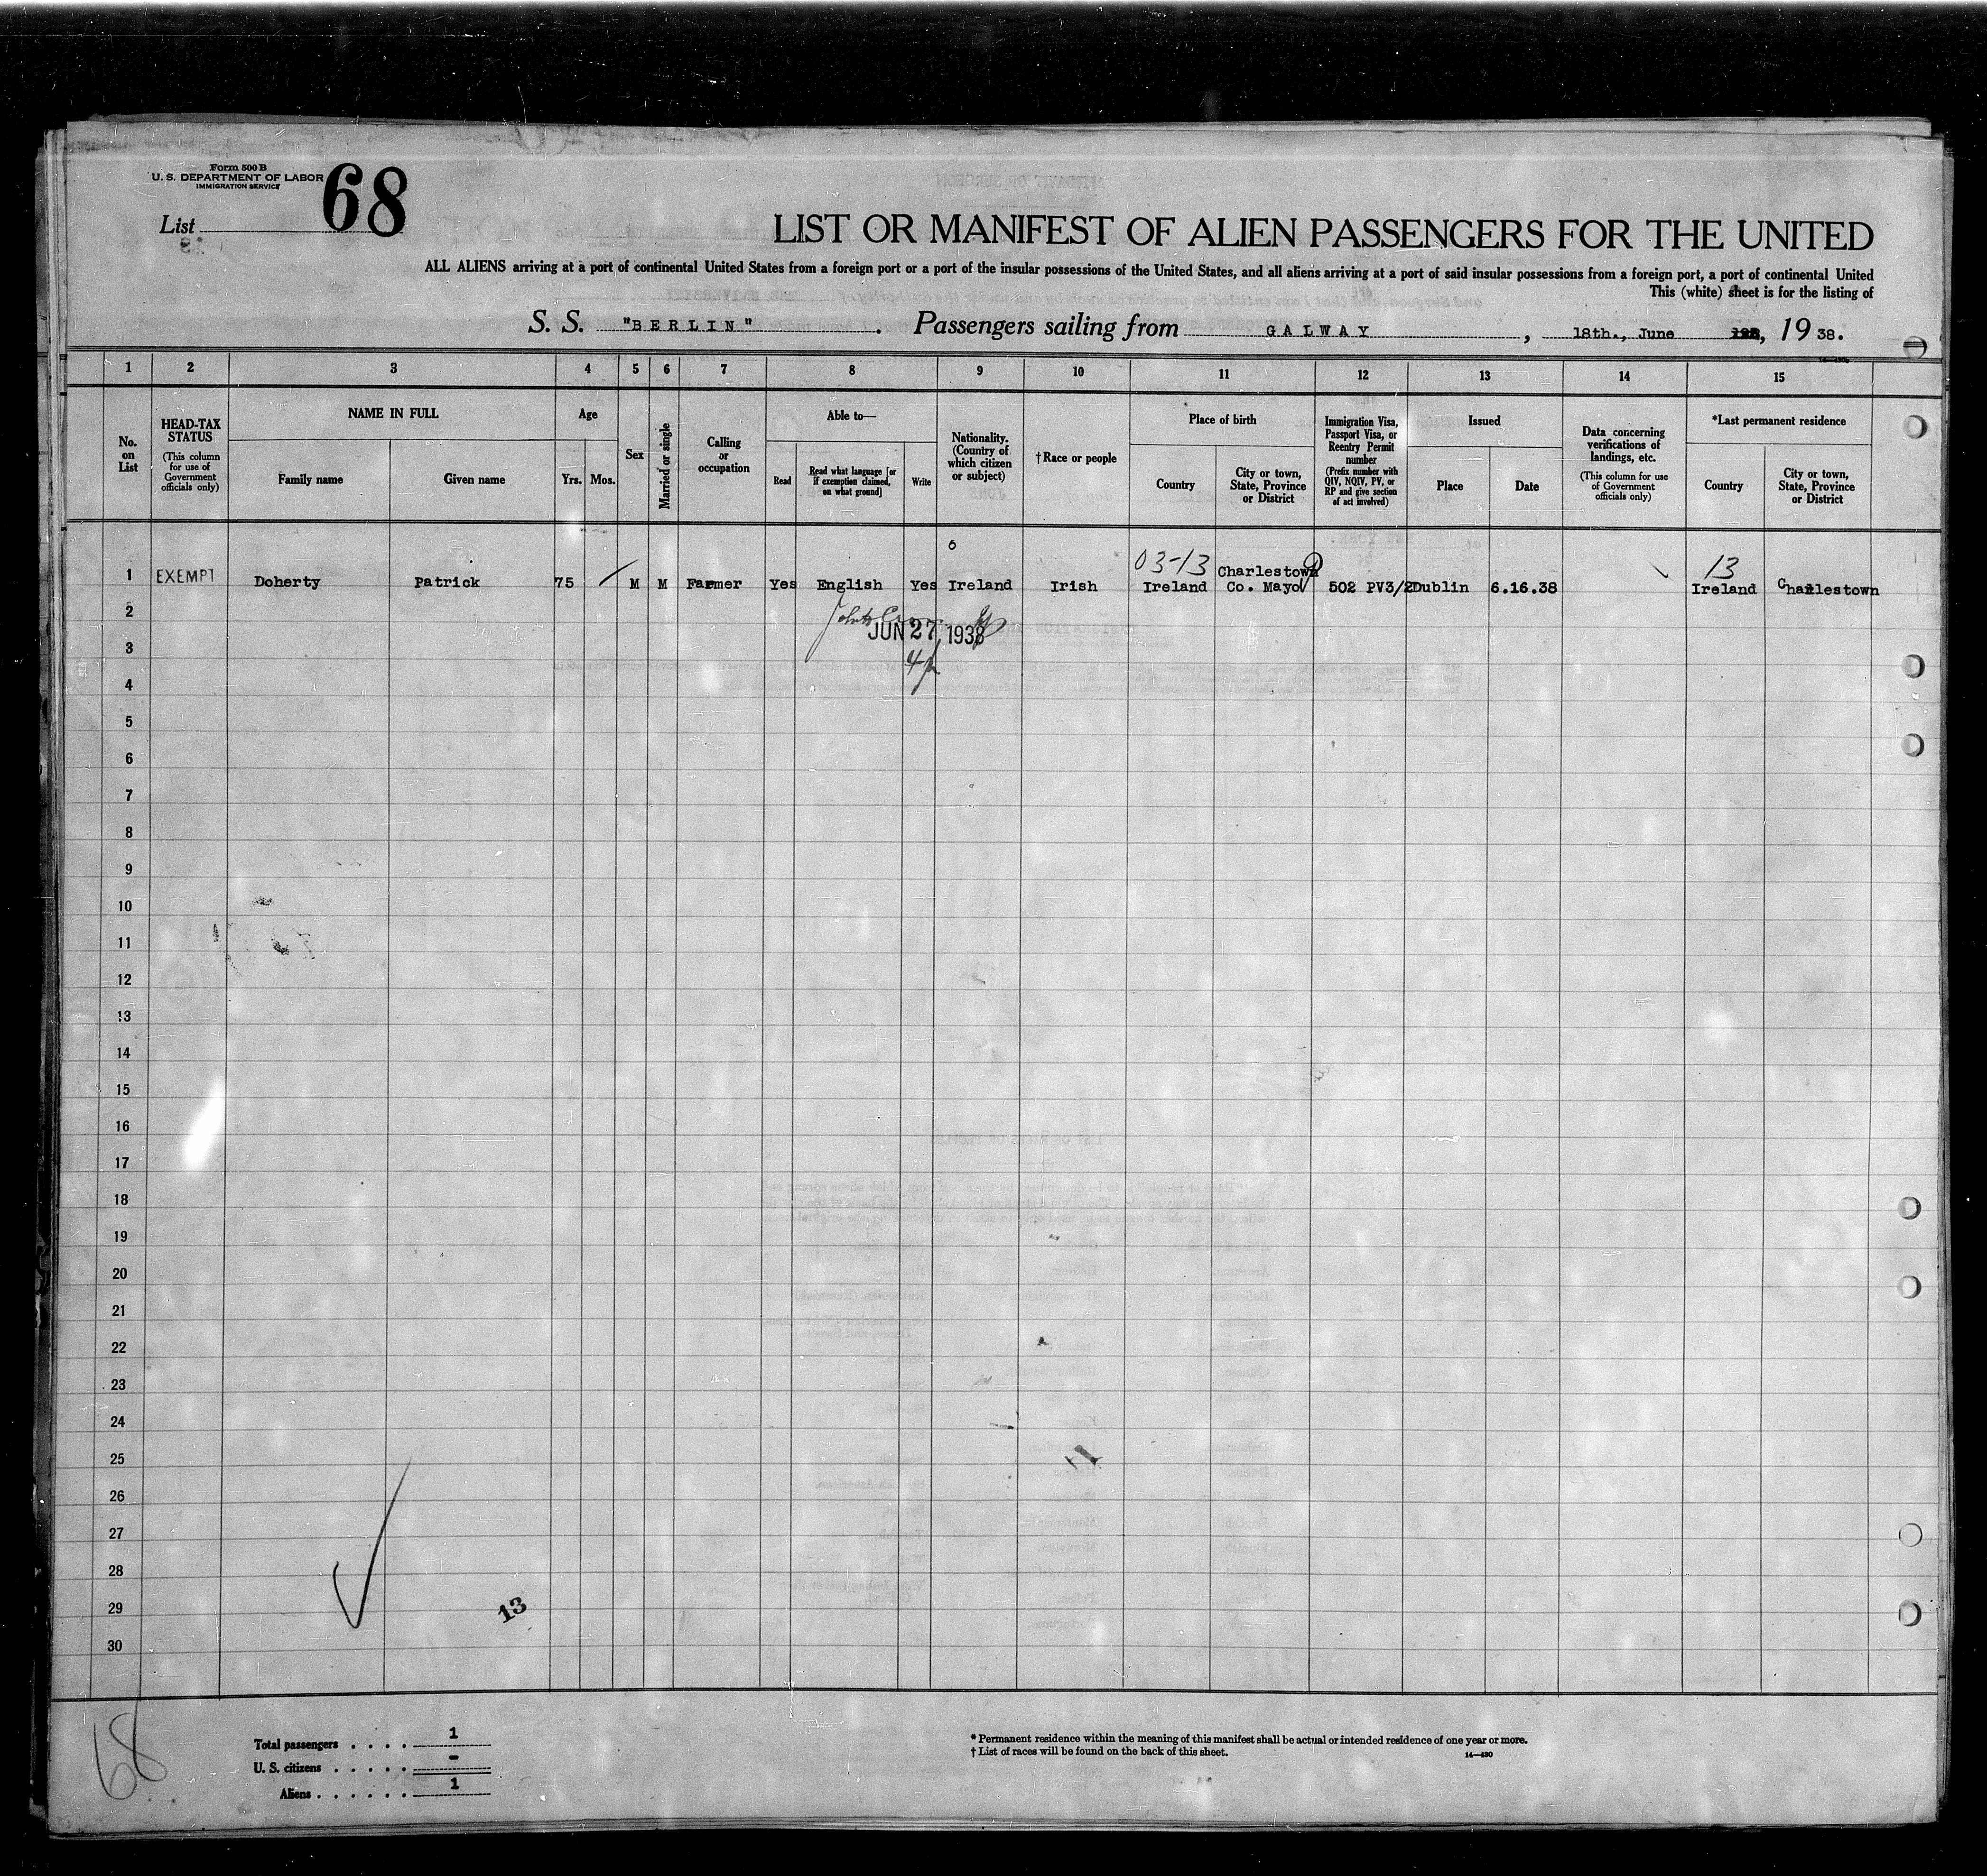 Form 500 B
U. S. DEPARTMENT OF LABOR
IMMIGRATION SERVICE
List 68
LIST OR MANIFEST OF ALIEN PASSENGERS FOR THE UNITED
ALL ALIENS arriving at a port of continental United States from a foreign port or a port of the insular possessions of the United States, and all aliens arriving at a port of said insular possessions from a foreign port, a port of continental United
This (white) sheet is for the listing of
S. S. "BERLIN". Passengers sailing from GALWAY, 18th., June, 19 38.
1 2 3 4 5 6 7 8 9 10 11 12 13 14 15
No. on List
HEAD-TAX STATUS
(This column for use of Government officials only)
NAME IN FULL
Family name
Given name
Age
Yrs.
Mos.
Sex
Married or single
Calling or occupation
Able to—
Read
Read what language [or if exemption claimed, on what ground]
Write
Nationality. (Country of which citizen or subject)
†Race or people
Place of birth
Country
City or town, State, Province or District
Immigration Visa, Passport Visa, or Reentry Permit number
(Prefix number with QIV, NQIV, PV, or RP and give section of act involved)
Issued
Place
Date
Data concerning verifications of landings, etc.
(This column for use of Government officials only)
*Last permanent residence
Country
City or town, State, Province or District
03-13 13
1 EXEMPT Doherty Patrick 75 M M Farmer Yes English Yes Ireland Irish Ireland Charlestown Co. Mayo 502 PV3/2 Dublin 6.16.38 Ireland Charlestown
2
JUN 27 1938
3
4
5
6
7
8
9
10
11
12
13
14
15
16
17
18
19
20
21
22
23
24
25
26
27
28
29
13
30
68
Total passengers . . . . 1
U. S. citizens . . . . . -
Aliens . . . . . . 1
* Permanent residence within the meaning of this manifest shall be actual or intended residence of one year or more.
† List of races will be found on the back of this sheet.
14—430